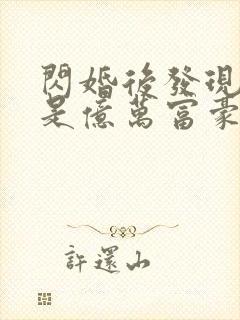 閃婚後發現
是億萬富豪
許還山